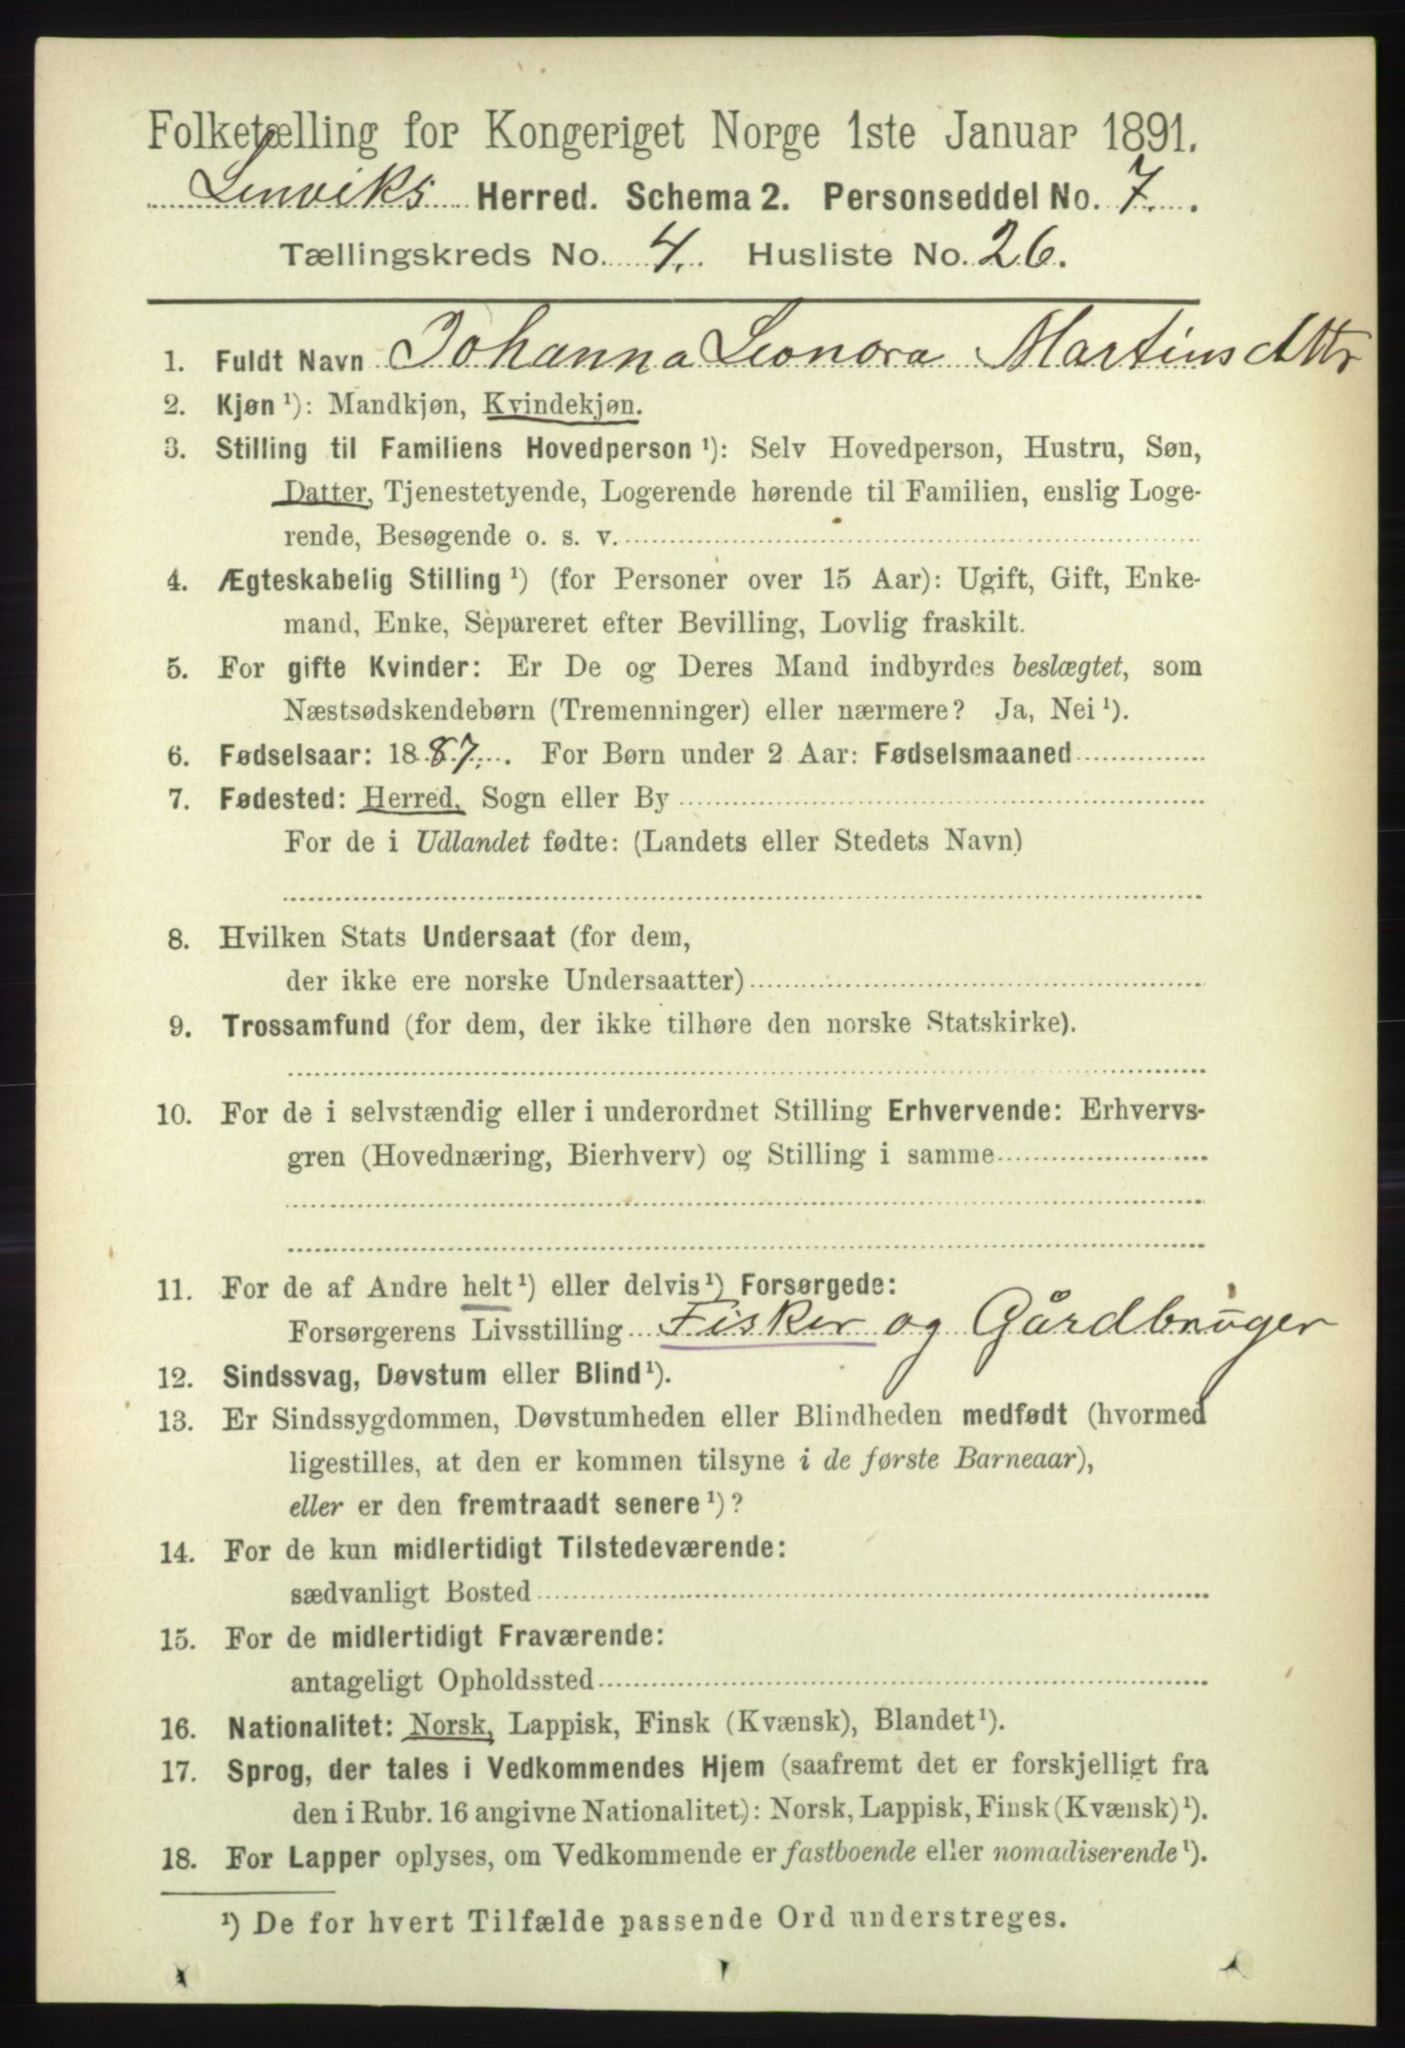 Folketælling for Kongeriget Norge 1ste Januar 1891.
Lenviks Herred. Schema 2. Personseddel No. 7.
Tællingskreds No. 4. Husliste No. 26.
1. Fuldt Navn Johanna Leonora Martinsdttr
2. Kjøn ¹): Mandkjøn, Kvindekjøn.
3. Stilling til Familiens Hovedperson ¹): Selv Hovedperson, Hustru, Søn,
Datter, Tjenestetyende, Logerende hørende til Familien, enslig Loge-
rende, Besøgende o. s. v.
4. Ægteskabelig Stilling ¹) (for Personer over 15 Aar): Ugift, Gift, Enke-
mand, Enke, Separeret efter Bevilling, Lovlig fraskilt.
5. For gifte Kvinder: Er De og Deres Mand indbyrdes beslægtet, som
Næstsødskendebørn (Tremenninger) eller nærmere? Ja, Nei ¹).
6. Fødselsaar: 1887. For Børn under 2 Aar: Fødselsmaaned
7. Fødested: Herred, Sogn eller By
For de i Udlandet fødte: (Landets eller Stedets Navn)
8. Hvilken Stats Undersaat (for dem,
der ikke ere norske Undersaatter)
9. Trossamfund (for dem, der ikke tilhøre den norske Statskirke).
10. For de i selvstændig eller i underordnet Stilling Erhvervende: Erhvervs-
gren (Hovednæring, Bierhverv) og Stilling i samme
11. For de af Andre helt ¹) eller delvis ¹) Forsørgede:
Forsørgerens Livsstilling Fisker og Gårdbruger
12. Sindssvag, Døvstum eller Blind ¹).
13. Er Sindssygdommen, Døvstumheden eller Blindheden medfødt (hvormed
ligestilles, at den er kommen tilsyne i de første Barneaar),
eller er den fremtraadt senere ¹)?
14. For de kun midlertidigt Tilstedeværende:
sædvanligt Bosted
15. For de midlertidigt Fraværende:
antageligt Opholdssted
16. Nationalitet: Norsk, Lappisk, Finsk (Kvænsk), Blandet ¹).
17. Sprog, der tales i Vedkommendes Hjem (saafremt det er forskjelligt fra
den i Rubr. 16 angivne Nationalitet): Norsk, Lappisk, Finsk (Kvænsk) ¹).
18. For Lapper oplyses, om Vedkommende er fastboende eller nomadiserende ¹).
¹) De for hvert Tilfælde passende Ord understreges.